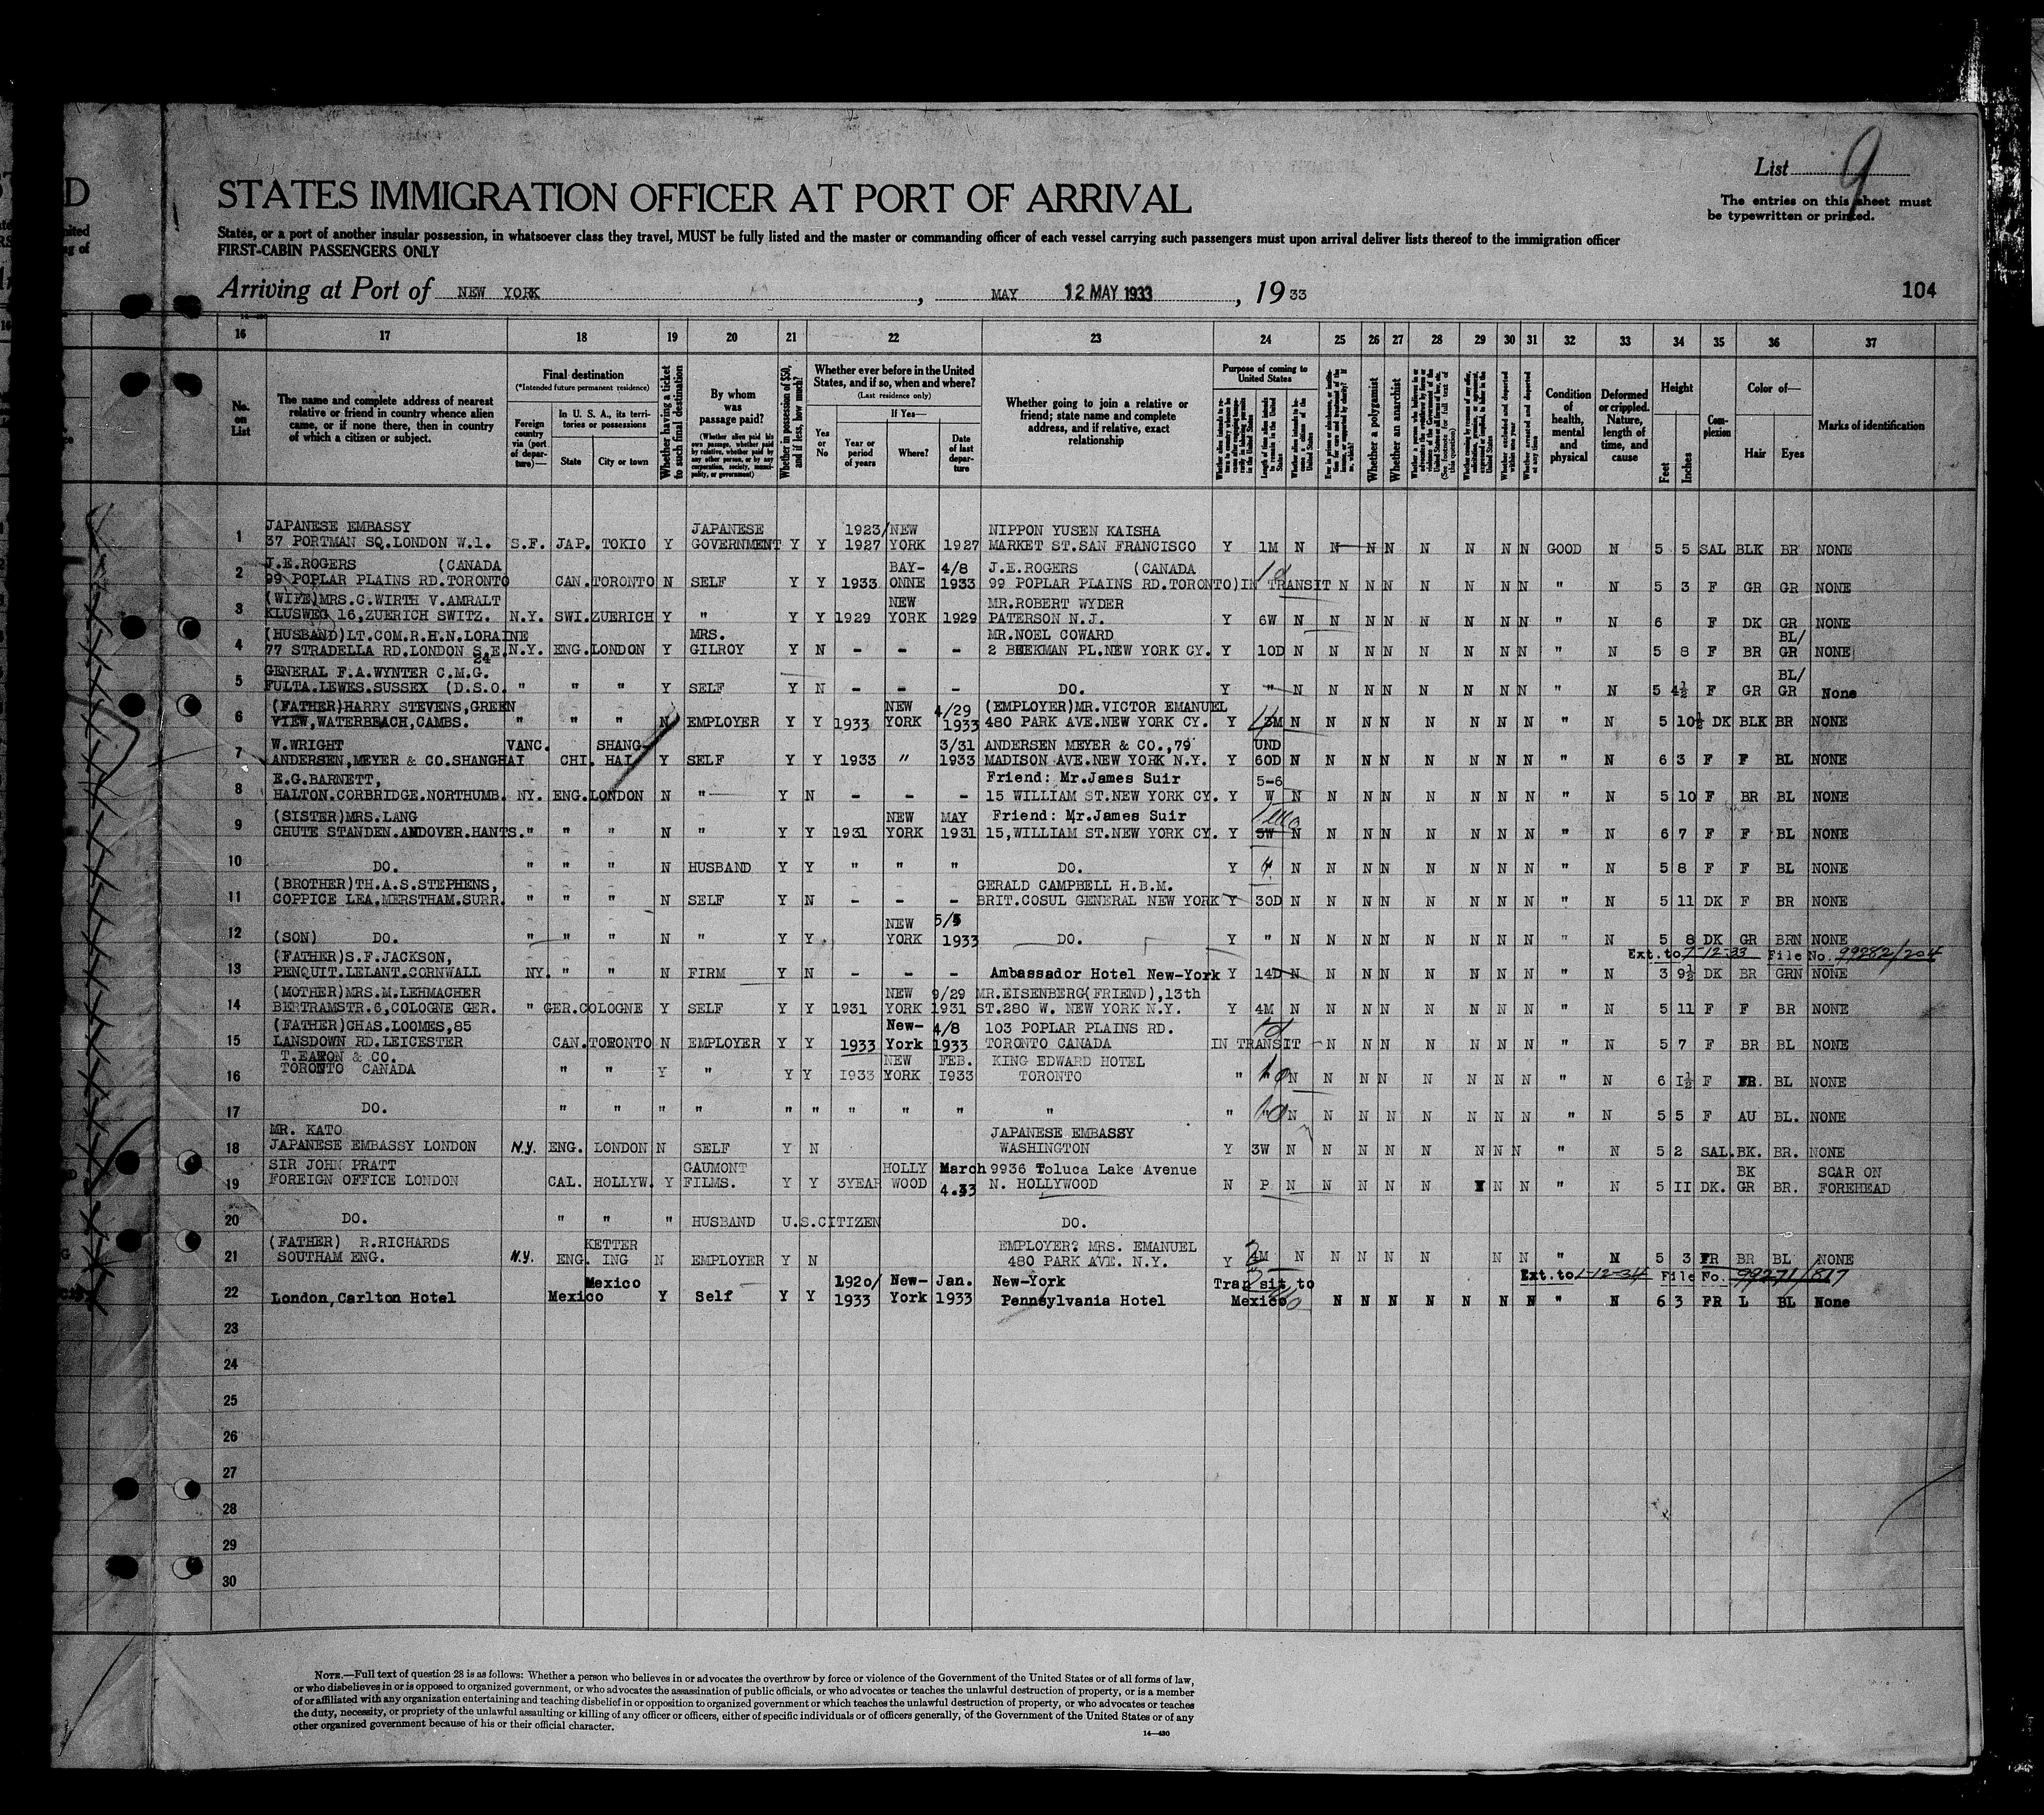 List 9
STATES IMMIGRATION OFFICER AT PORT OF ARRIVAL
The entries on this sheet must
be typewritten or printed.
States, or a port of another insular possession, in whatsoever class they travel, MUST be fully listed and the master or commanding officer of each vessel carrying such passengers must upon arrival deliver lists thereof to the immigration officer
FIRST-CABIN PASSENGERS ONLY
Arriving at Port of NEW YORK , MAY 12 MAY 1933 , 19 33
104
16 17 18 19 20 21 22 23 24 25 26 27 28 29 30 31 32 33 34 35 36 37
No. on List
The name and complete address of nearest relative or friend in country whence alien came, or if none there, then in country of which a citizen or subject.
Final destination
(*Intended future permanent residence)
Foreign country via (port of departure)—
In U. S. A., its territories or possessions
State
City or town
Whether having a ticket to such final destination
By whom was passage paid?
(Whether alien paid his own passage, whether paid by relative, whether paid by any other person, or by any corporation, society, municipality, or government)
Whether in possession of $50, and if less, how much?
Whether ever before in the United States, and if so, when and where?
(Last residence only)
Yes or No
If Yes—
Year or period of years
Where?
Date of last departure
Whether going to join a relative or friend; state name and complete address, and if relative, exact relationship
Purpose of coming to United States
Length of time alien intends to remain in the United States
Whether a polygamist
Whether an anarchist
Whether excluded and deported within one year
Whether arrested and deported at any time
Condition of health, mental and physical
Deformed or crippled. Nature, length of time, and cause
Height
Feet
Inches
Complexion
Color of—
Hair
Eyes
Marks of identification
JAPANESE EMBASSY JAPANESE 1923/ NEW NIPPON YUSEN KAISHA
1 37 PORTMAN SQ.LONDON W.1. S.F. JAP. TOKIO Y GOVERNMENT Y Y 1927 YORK 1927 MARKET ST.SAN FRANCISCO Y 1M N N N N N N N N GOOD N 5 5 SAL BLK BR NONE
J.E.ROGERS (CANADA BAY- 4/8 J.E.ROGERS (CANADA
2 99 POPLAR PLAINS RD.TORONTO CAN. TORONTO N SELF Y Y 1933 ONNE 1933 99 POPLAR PLAINS RD.TORONTO) IN TRANSIT N N N N N N N " N 5 3 F GR GR NONE
(WIFE)MRS.C.WIRTH V.AMRALT NEW MR.ROBERT WYDER
3 KLUSWEG 16,ZUERICH SWITZ. N.Y. SWI. ZUERICH Y " Y Y 1929 YORK 1929 PATERSON N.J. Y 6W N N N N N N N N " N 6 F DK GR NONE
(HUSBAND)LT.COM.R.H.N.LORAINE MRS. MR.NOEL COWARD BL/
4 77 STRADELLA RD.LONDON S.E. 24 N.Y. ENG. LONDON Y GILROY Y N - - - 2 BEEKMAN PL.NEW YORK CY. Y 10D N N N N N N N N " N 5 8 F BR GR NONE
GENERAL F.A.WYNTER C.M.G. BL/
5 FULTA.LEWES.SUSSEX (D.S.O. " " " Y SELF Y N - - - DO. Y " N N N N N N N N " N 5 4½ F GR GR None
(FATHER)HARRY STEVENS,GREEN NEW 4/29 (EMPLOYER)MR.VICTOR EMANUEL
6 VIEW,WATERBEACH,CAMBS. " " " N EMPLOYER Y Y 1933 YORK 1933 480 PARK AVE.NEW YORK CY. Y N N N N N N N N " N 5 10½ DK BLK BR NONE
W.WRIGHT VANC. SHANG- 3/31 ANDERSEN MEYER & CO.,79 UND
7 ANDERSEN,MEYER & CO.SHANGHAI CHI. HAI Y SELF Y Y 1933 " 1933 MADISON AVE.NEW YORK N.Y. Y 60D N N N N N N N N " N 6 3 F F BL NONE
E.G.BARNETT, Friend: Mr.James Suir 5-6
8 HALTON.CORBRIDGE.NORTHUMB. NY. ENG. LONDON N " Y N - - - 15 WILLIAM ST.NEW YORK CY. Y W N N N N N N N N " N 5 10 F BR BL NONE
(SISTER)MRS.LANG NEW MAY Friend: Mr.James Suir
9 CHUTE STANDEN.ANDOVER.HANTS. " " " N " Y Y 1931 YORK 1931 15,WILLIAM ST.NEW YORK CY. Y 5W N N N N N N N N " N 6 7 F F BL NONE
10 DO. " " " N HUSBAND Y Y " " " DO. Y N N N N N N N N " N 5 8 F F BL NONE
(BROTHER)TH.A.S.STEPHENS, GERALD CAMPBELL H.B.M.
11 COPPICE LEA.MERSTHAM.SURR. " " " N SELF Y N - - - BRIT.COSUL GENERAL NEW YORK Y 30D N N N N N N N N " N 5 11 DK F BR NONE
NEW 5/5
12 (SON) DO. " " " N " Y Y YORK 1933 DO. Y " N N N N N N N N " N 5 8 DK GR BRN NONE
(FATHER)S.F.JACKSON, Ext.to 7-12-33 File No. 99282/204
13 PENQUIT.LELANT.CORNWALL NY. " " N FIRM Y N - - - Ambassador Hotel New-York Y 14D N N N N N N N N " N 3 9½ DK BR GRN NONE
(MOTHER)MRS.M.LEHMACHER NEW 9/29 MR.EISENBERG(FRIEND),13th
14 BERTRAMSTR.6,COLOGNE GER. " GER. COLOGNE Y SELF Y Y 1931 YORK 1931 ST.280 W. NEW YORK N.Y. Y 4M N N N N N N N N " N 5 11 F F BR NONE
(FATHER)CHAS.LOOMES,85 New- 4/8 103 POPLAR PLAINS RD.
15 LANSDOWN RD.LEICESTER CAN. TORONTO N EMPLOYER Y Y 1933 York 1933 TORONTO CANADA IN TRANSIT N N N N N N N " N 5 7 F BR BL NONE
T.EATON & CO. NEW FEB. KING EDWARD HOTEL
16 TORONTO CANADA " " Y " Y Y 1933 YORK 1933 TORONTO " N N N N N N N N " N 6 1½ F FR. BL NONE
17 DO. " " " " " " " " " " " N N N N N N N N " N 5 5 F AU BL. NONE
MR. KATO JAPANESE EMBASSY
18 JAPANESE EMBASSY LONDON N.Y. ENG. LONDON N SELF Y N WASHINGTON Y 3W N N N N N N N N " N 5 2 SAL. BK. BR. NONE
SIR JOHN PRATT GAUMONT HOLLY March 9936 Toluca Lake Avenue BK SCAR ON
19 FOREIGN OFFICE LONDON CAL. HOLLYW. Y FILMS. Y Y 3YEAR WOOD 4.33 N. HOLLYWOOD N P N N N N N N N " N 5 II DK. GR BR. FOREHEAD
20 DO. " " " HUSBAND U.S.CITIZEN DO.
(FATHER) R.RICHARDS KETTER EMPLOYER? MRS. EMANUEL
21 SOUTHAM ENG. N.Y. ENG. ING N EMPLOYER Y N 480 PARK AVE. N.Y. Y N N N N N N N " N 5 3 FR BR BL NONE
Mexico 1920/ New- Jan. New-York Transit to Ext.to 1-12-34 File No. 99271/817
22 London,Carlton Hotel Mexico Y Self Y Y 1933 York 1933 Pennsylvania Hotel Mexico N N N N N N N " N 6 3 FR L BL None
23
24
25
26
27
28
29
30
NOTE.—Full text of question 28 is as follows: Whether a person who believes in or advocates the overthrow by force or violence of the Government of the United States or of all forms of law,
or who disbelieves in or is opposed to organized government, or who advocates the assassination of public officials, or who advocates or teaches the unlawful destruction of property, or is a member
of or affiliated with any organization entertaining and teaching disbelief in or opposition to organized government or which teaches the unlawful destruction of property, or who advocates or teaches
the duty, necessity, or propriety of the unlawful assaulting or killing of any officer or officers, either of specific individuals or of officers generally, of the Government of the United States or of any
other organized government because of his or their official character.
14—430